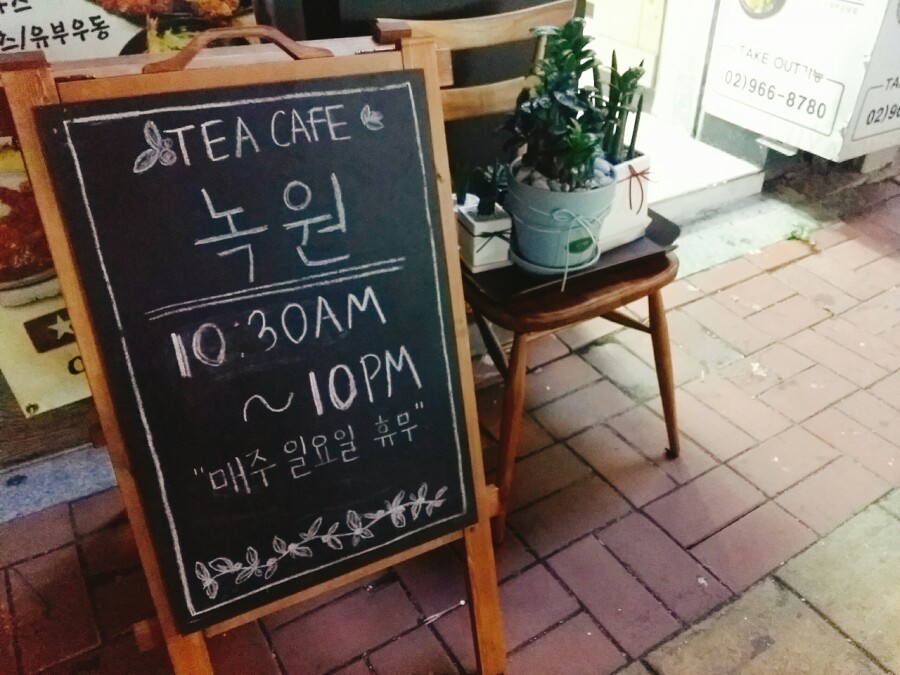 TEA CAFE
녹원
10:30AM
~10PM
"매주 일요일 휴무"
/유부우동
TAKE OUT가능
02)966-8780
TA
02)9